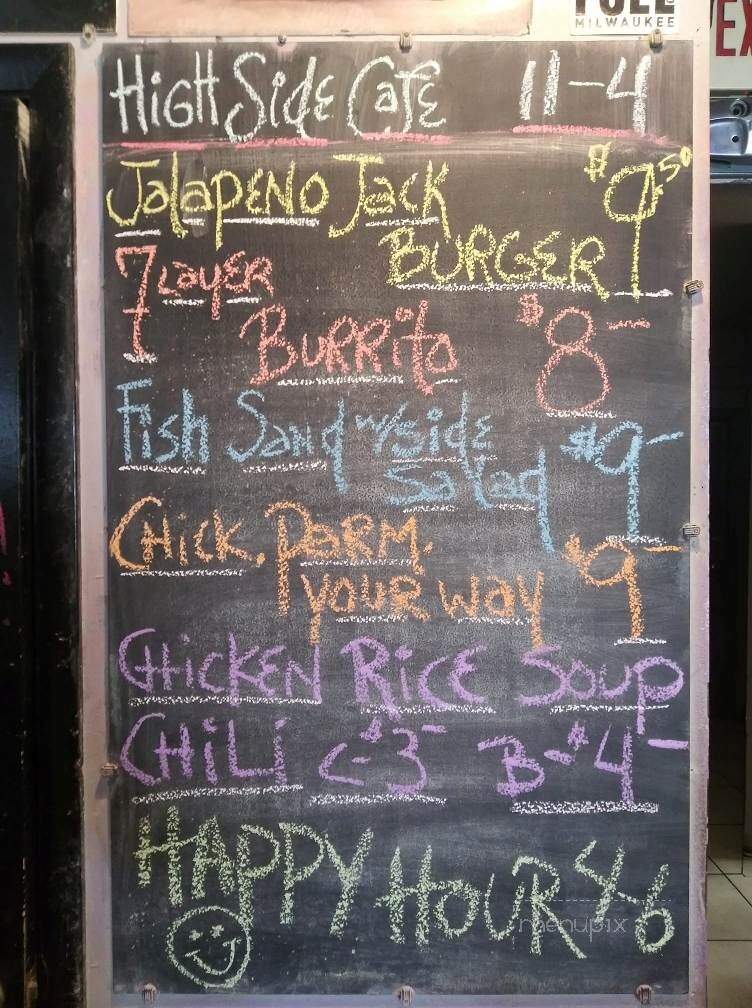 MILWAUKEE
HIGH SIDE CAFE 11-4
JALAPENO JACK $9.50
BURGER
7 LAYER
BURRITO $8-
FISH SAND w/SIDE
SALAD $9-
CHICK. PARM.
YOUR WAY $9-
CHICKEN RICE SOUP
CHILI C-$3- B-$4-
HAPPY HOUR 4-6
menupix